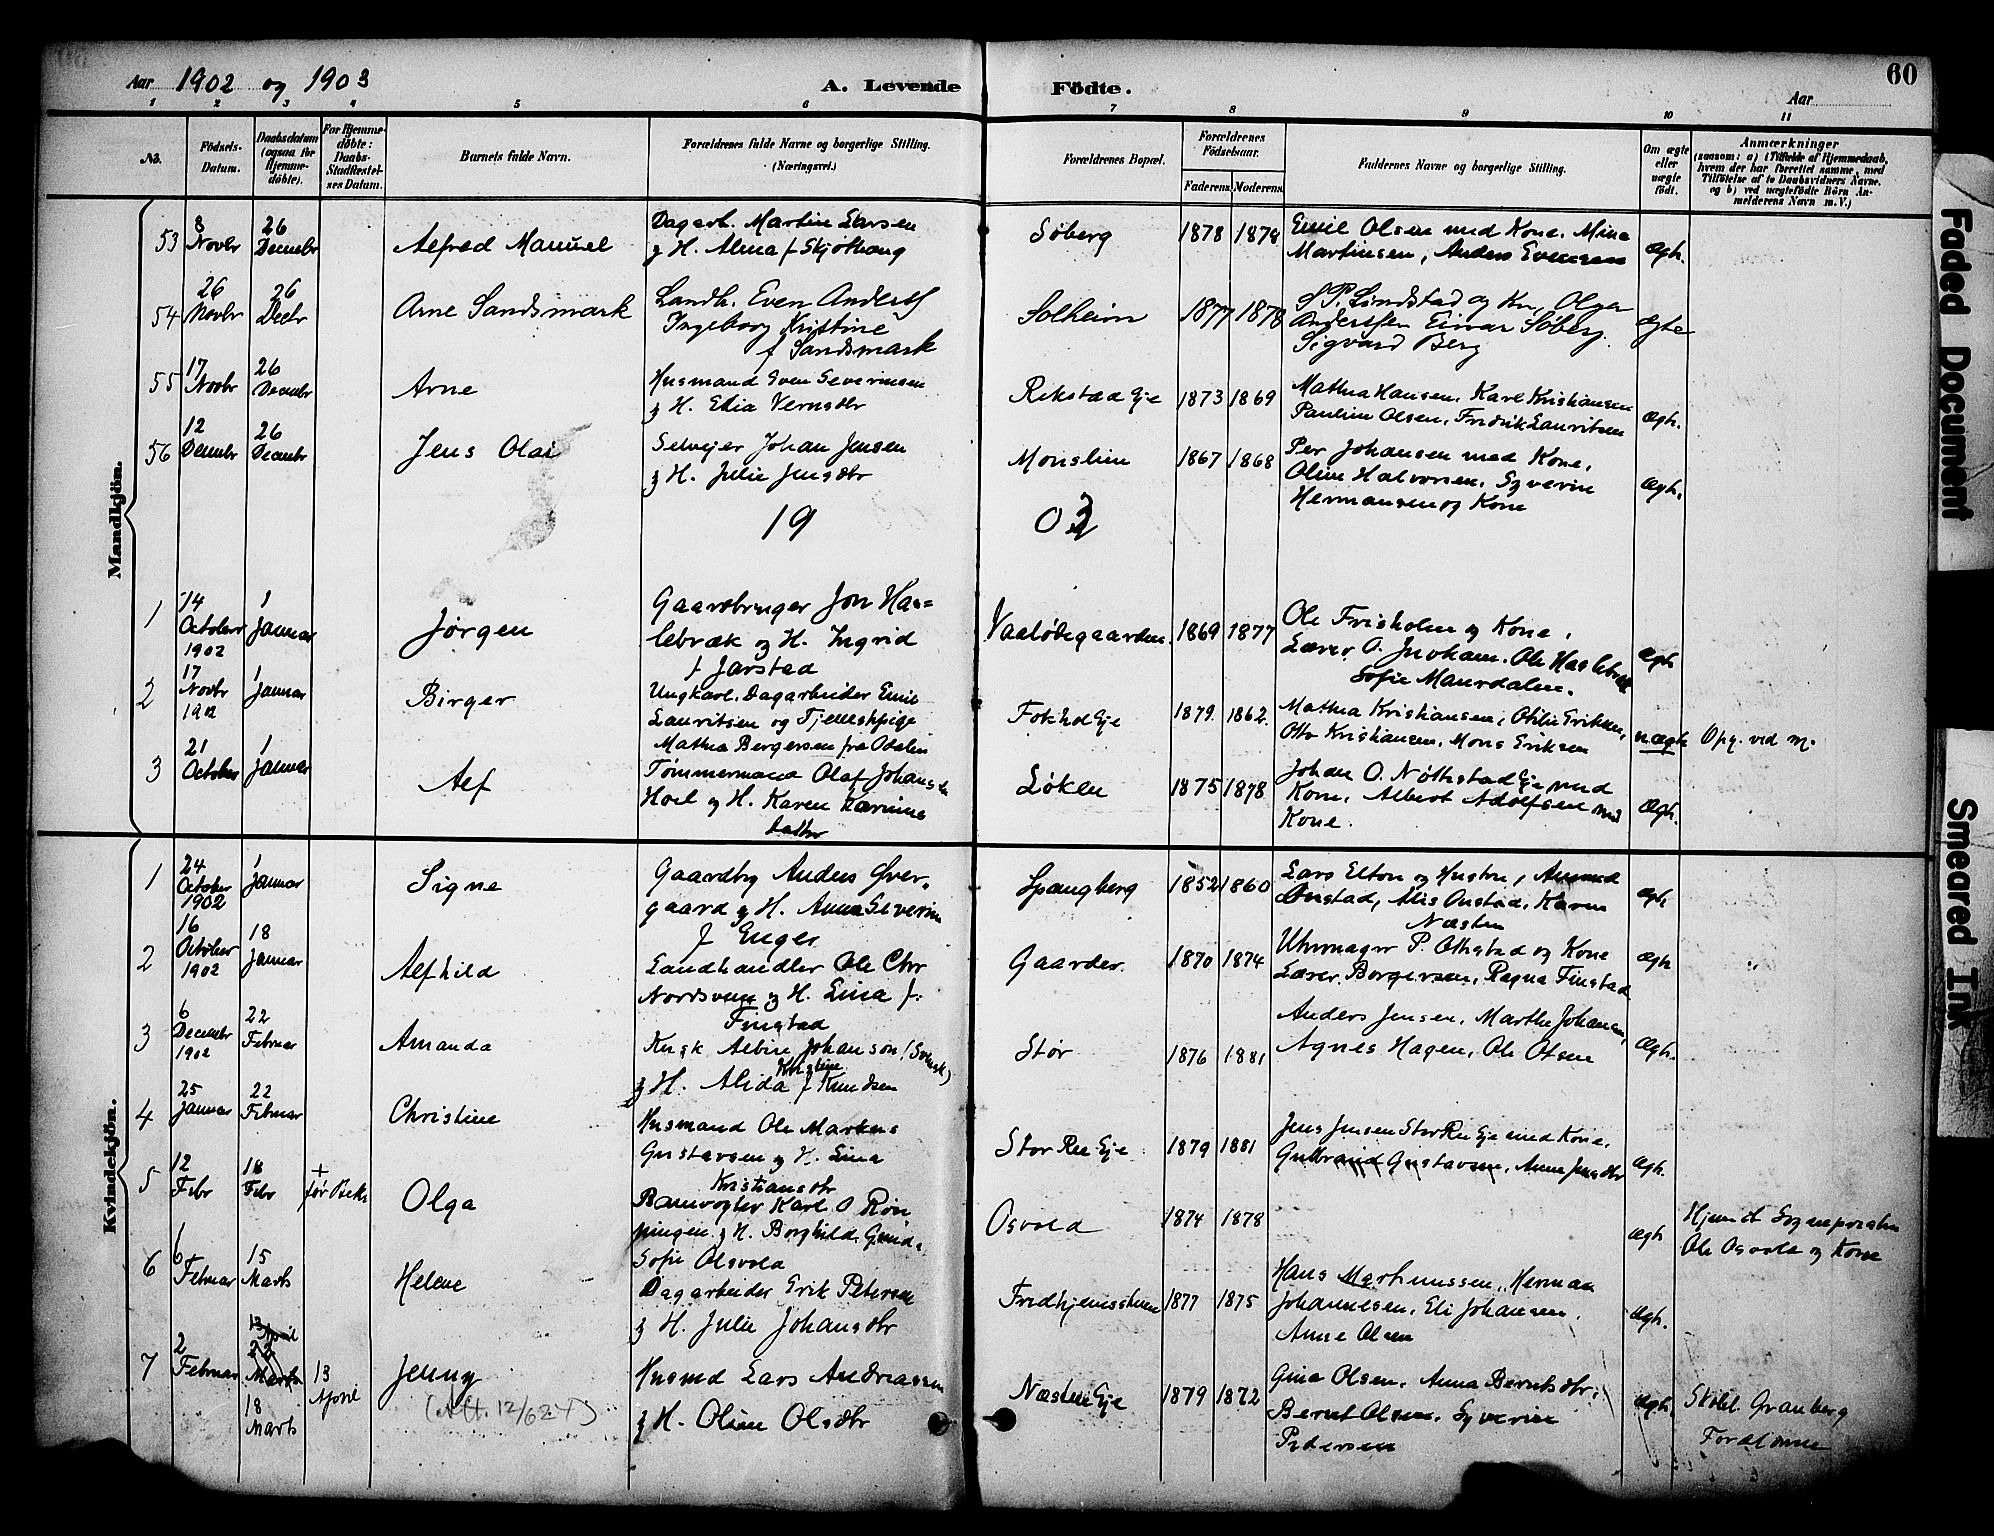 Aar 1902 og 1903 A. Levende Födte. Aar 60
1 2 3 4 5 6 7 8 9 10 11
No. Födsels-Datum. Daabsdatum (ogsaa for Hjemmedöbte). For Hjemmedöbte: Daabs-Stadfæstelses Datum. Barnets fulde Navn. Forældrenes fulde Navne og borgerlige Stilling. (Næringsvei.) Forældrenes Bopæl. Forældrenes Födselsaar. Faderens. Moderens. Faddernes Navne og borgerlige Stilling. Om ægte eller uægte födt. Anmærkninger
(saasom: a) i Tilfælde af Hjemmedaab, hvem der har forrettet samme, med Tilföielse af to Daabsvidners Navne, og b) ved uægtefödte Börn Anmelderens Navn m.V.)
Mandkjön.
53 8 Novbr 26 Decembr Alfred Manuel
Dagarb. Martin Larsen
& H. Alma f Skjøthaug
Søberg 1878 1878
Emil Olsen med Kone. Mina
Martinsen, Anders Evensen
Ægh.
54 26 Novbr 26 Decbr Arne Sandsmark
Landh. Even Anderss
Ingeborg Kristine
f Sandsmark
Solheim 1877 1878
S P. Lundstad og Kn, Olga
Anderssen Einar Søberg.
Sigvard Berg
Ægte
55 17 Novbr 26 Decembr Arne
Husmand Sven Severinsen
& H. Elia Vernsdtr
Rikstad Eje 1873 1869
Mathea Hansen, Karl Kristiansen
Pauline Olsen, Fredrik Lauritsen
Ægh.
56 12 Decembr 26 Decembr Jens Olai
Selvejer Johan Jensen
& H. Julie Jensdtr
Monslien 1867 1868
Per Johansen med Kone,
Oline Halvorsen, Syverin
Hermansen og Kone
Ægh.
19 03
1 14 October 1902 1 Januar Jørgen
Gaardbruger Jon Has=
lebræk og H. Ingrid
f Jarstad
Vaalødegaarden 1869 1877
Ole Frisholm og Kone,
Lærer O. Ole Haslebræk
Sofie Maurdalen.
Ægh
2 17 Novbr 1902 1 Januar Birger
Ungkarl. Dagarbeider Emil
Lauritsen og Tjenestpige
Mathea Bergersen fra Odalen
Fokhol Eje 1879. 1862.
Mathea Kristiansen, Otilie Eriksen,
Otto Kristiansen, Mons Eriksen
uægte Opg. ved m.
3 21 October 1 Januar Alf
Tømmermand Olaf Johansen
Hoel og H. Karen Karinius
datter
Løken 1875 1878
Johan O. Nøttestad Eje med
Kone, Albert Adolfsen med
Kone.
Ægh.
Kvindekjön.
1 24 October 1902 1 Januar Signe
Gaardbrg Anders Øver,
gaard & H. Anna Severin
f Enger
Spangberg 1852 1860
Lars Elton og Hustru, Amund
Onstad, Alis Onstad, Karen
Næsten
Ægh
2 16 October 1902 18 Januar Alfhild
Landhandler Ole Chr
Nordsveen & H. Lina f.
Fingstad
Gaarder. 1870 1874
Uhrmager P. Othstad og Kone
Lærer Borgersen, Ragna Finstad
Ægh
3 6 Decembr 1902 22 Februar Amanda
Kusk Albin Johanson (Svensk)
& H. Alida Kristine f Knudsen
Stør 1876 1881
Anders Jensen, Marthe Johansen,
Agnes Hagen, Ole Olsen
Ægh.
4 25 Januar 22 Februar Christine
Husmand Ole Markus
Gustavsen & H. Lina
Kristiansdtr
Stor Ree Eje 1879 1881
Jens Jensen StorRee Eje med Kone,
Gulbrand Gustavsen, Anne Jensdtr
Ægh.
5 12 Febr 18 Febr + før Beks Olga
Banevogter Karl O Røn
ningen & H. Borghild Gund.
Sofie Olsvold
Osvold 1874 1878
Ægh
Hjemdt Sognepræsten
Ole Osvold og Kone
6 6 Februar 15 Marts Helene
Dagarbeider Erik Petersen
& H. Julie Johansdtr
Fredhjemsstuen 1877 1875
Hans Marthinussen, Herman
Johannesen, Eli Johansen,
Anne Olsen
Ægh.
7 2 Februar 13 April 22 Marts 18 Marts 13 April Jenny
(Att. 12/62 T)
Husmd Lars Andreassen
& H. Oline Olsdtr
Næsten Eje 1879 1872
Gina Olsen, Anna Berntsdtr,
Bernt Olsen, Syverin
Pedersen
Ægh.
Skoll. Granberg
Foreldrene
Faded Document
Smeared Ink